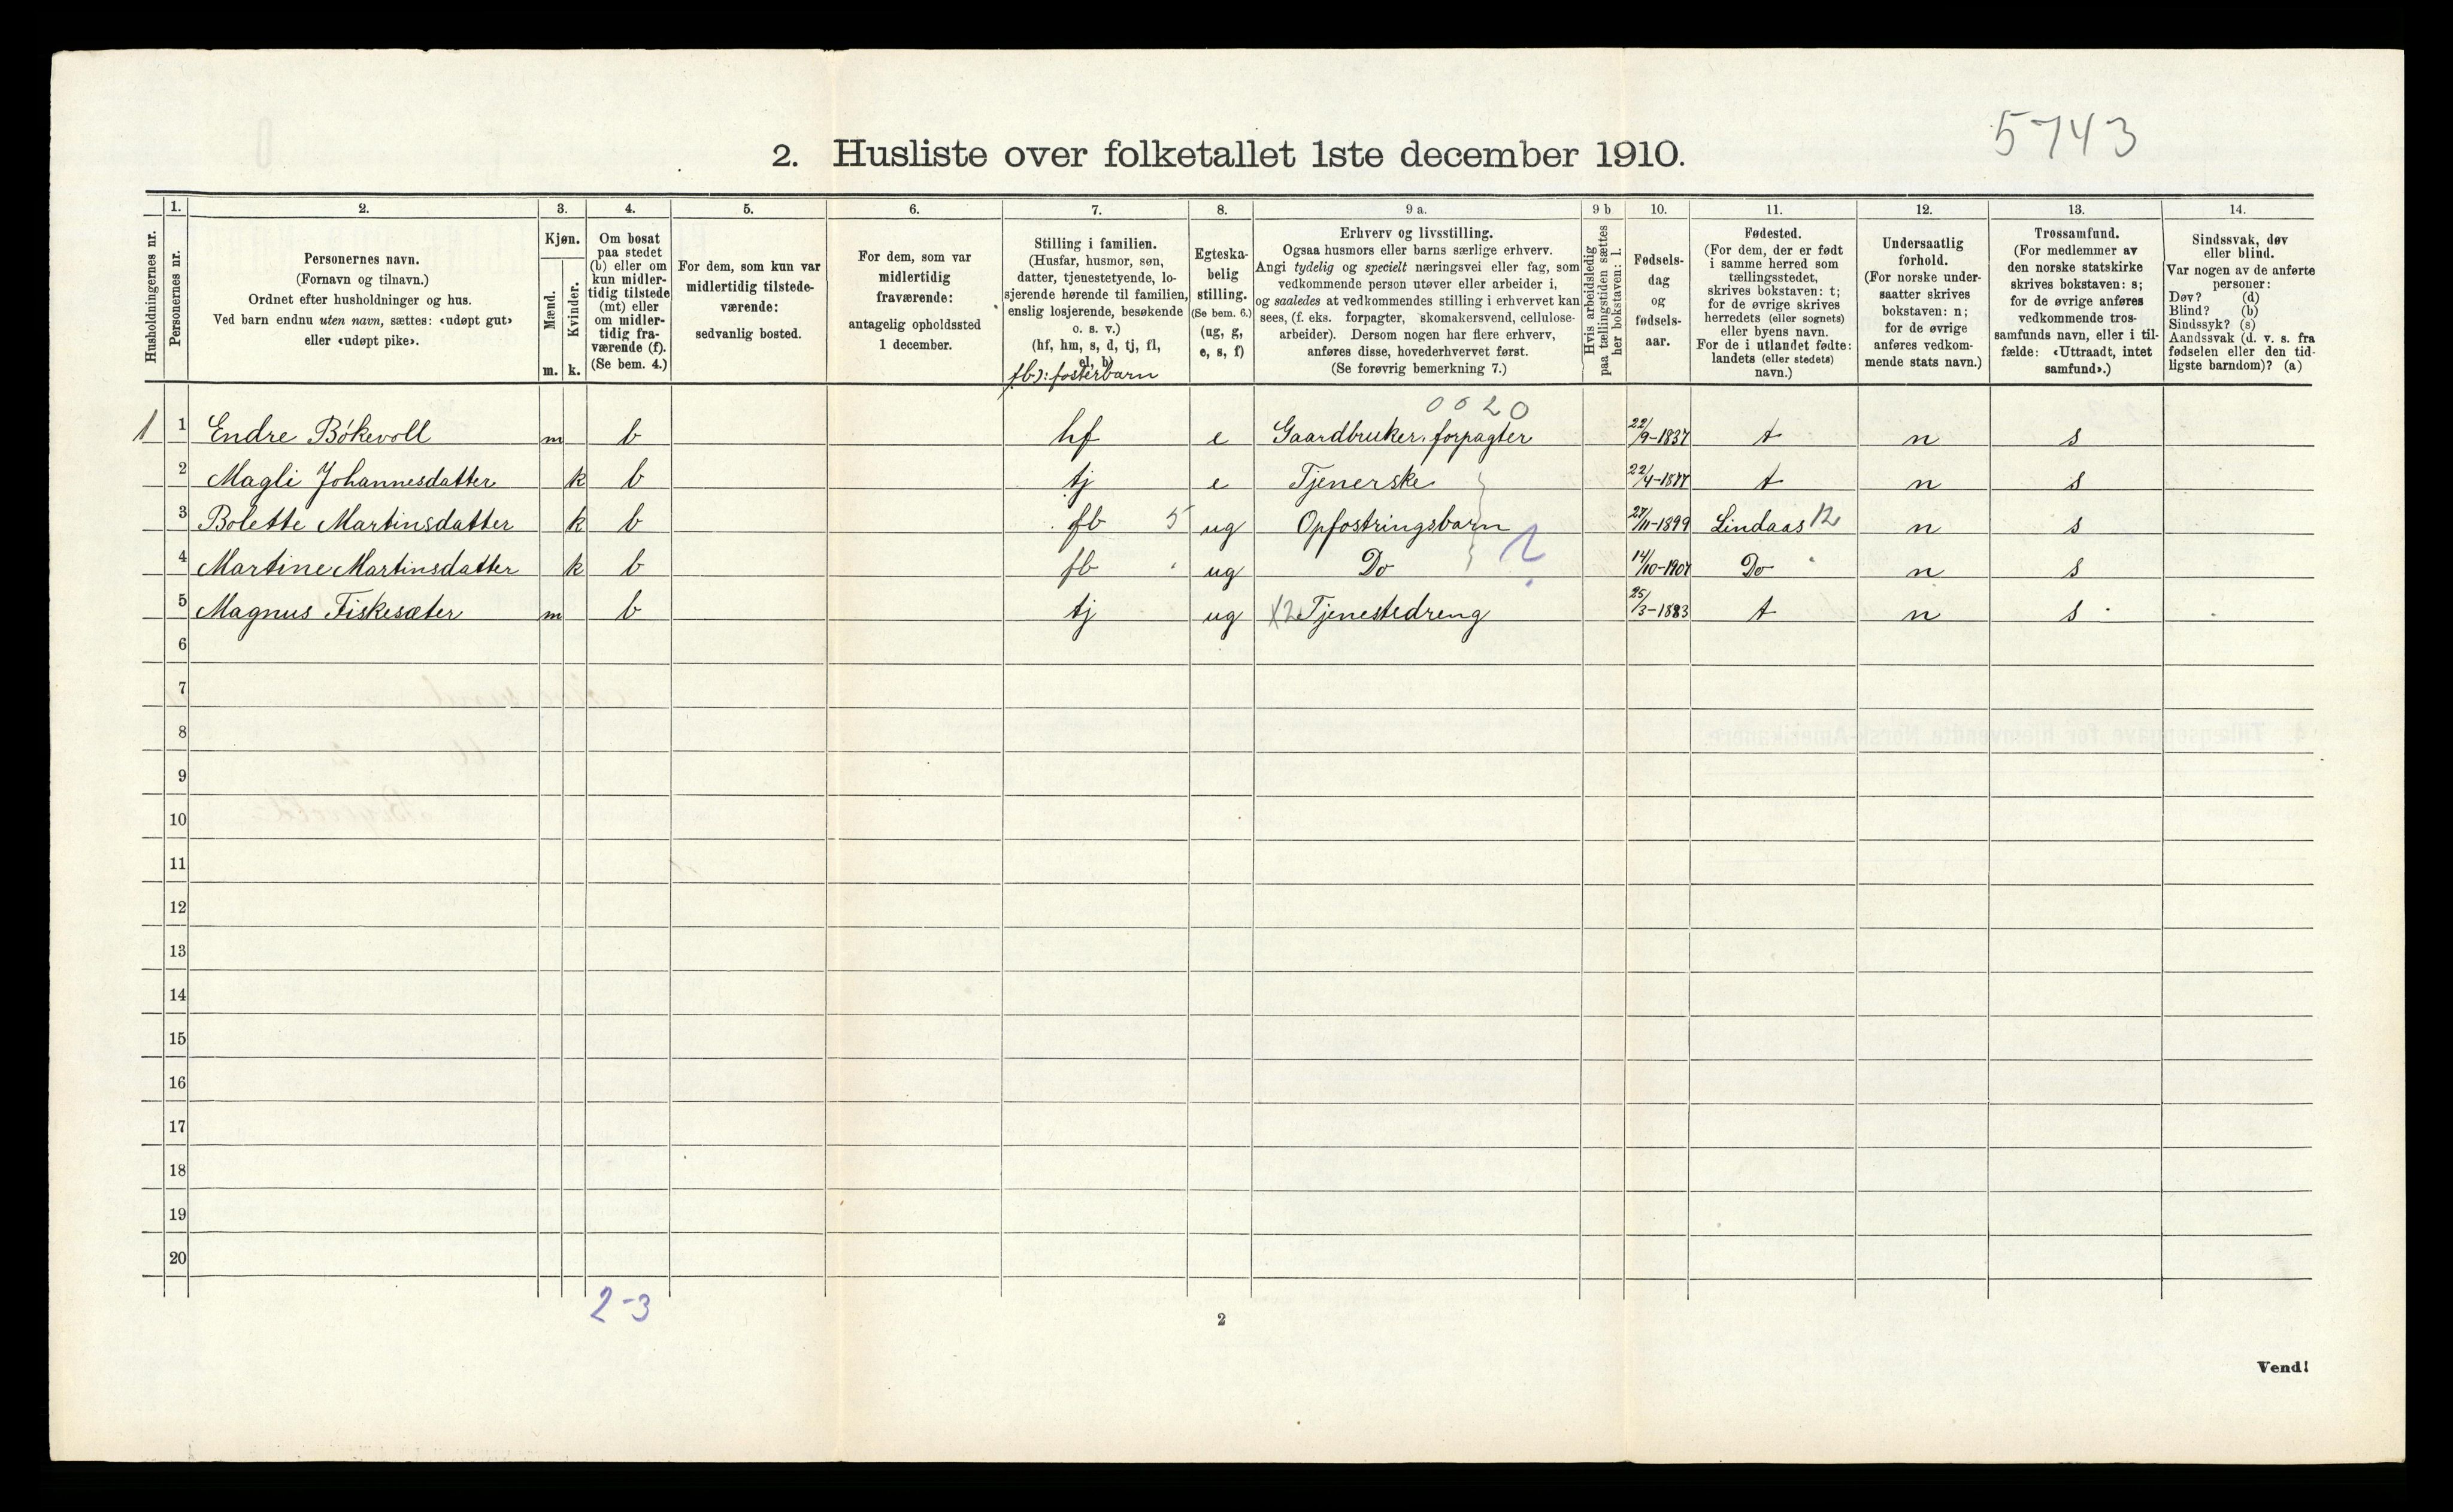 5743
2. Husliste over folketallet 1ste december 1910.
1. 2. 3. 4. 5. 6. 7. 8. 9 a. 9 b 10. 11. 12. 13. 14.
Husholdningernes nr.
Personernes nr.
Personernes navn.
(Fornavn og tilnavn.)
Ordnet efter husholdninger og hus.
Ved barn endnu uten navn, sættes: «udøpt gut»
eller «udøpt pike».
Kjøn.
Mænd.
Kvinder.
m. k.
Om bosat
paa stedet
(b) eller om
kun midler-
tidig tilstede
(mt) eller
om midler-
tidig fra-
værende (f).
(Se bem. 4.)
For dem, som kun var
midlertidig tilstede-
værende:
sedvanlig bosted.
For dem, som var
midlertidig
fraværende:
antagelig opholdssted
1 december.
Stilling i familien.
(Husfar, husmor, søn,
datter, tjenestetyende, lo-
sjerende hørende til familien,
enslig losjerende, besøkende
o. s. v.)
(hf, hm, s, d, tj, fl,
el, b)
fb): fosterbarn
Egteska-
belig
stilling.
(Se bem. 6.)
(ug, g,
e, s, f)
Erhverv og livsstilling.
Ogsaa husmors eller barns særlige erhverv.
Angi tydelig og specielt næringsvei eller fag, som
vedkommende person utøver eller arbeider i,
og saaledes at vedkommendes stilling i erhvervet kan
sees, (f. eks. forpagter, skomakersvend, cellulose-
arbeider). Dersom nogen har flere erhverv,
anføres disse, hovederhvervet først.
(Se forøvrig bemerkning 7.)
Hvis arbeidsledig
paa tællingstiden sættes
her bokstaven: l.
Fødsels-
dag
og
fødsels-
aar.
Fødested.
(For dem, der er født
i samme herred som
tællingsstedet,
skrives bokstaven: t;
for de øvrige skrives
herredets (eller sognets)
eller byens navn.
For de i utlandet fødte:
landets (eller stedets)
navn.)
Undersaatlig
forhold.
(For norske under-
saatter skrives
bokstaven: n;
for de øvrige
anføres vedkom-
mende stats navn.)
Trossamfund.
(For medlemmer av
den norske statskirke
skrives bokstaven: s;
for de øvrige anføres
vedkommende tros-
samfunds navn, eller i til-
fælde: «Uttraadt, intet
samfund».)
Sindssvak, døv
eller blind.
Var nogen av de anførte
personer:
Døv? (d)
Blind? (b)
Sindssyk? (s)
Aandssvak (d. v. s. fra
fødselen eller den tid-
ligste barndom)? (a)
0020
1 1 Endre Bökevoll m b hf e Gaardbruker, forpagter 22/9-1837 t n s
2 Magli Johannesdatter k b tj e Tjenerske 22/4- t n s
3 Bolette Martinsdatter k b fb 5 ug Opfostringsbarn 27/11-1899 Lindaas 12 n s
4 Martine Martinsdatter k b fb ug Do ? 14/10-1907 Do n s
5 Magnus Fiskesæter m b tj ug X2 Tjenestedreng 25/3-1883 t n s
6
7
8
9
10
11
12
13
14
15
16
17
18
19
20
2-3
2
Vend!